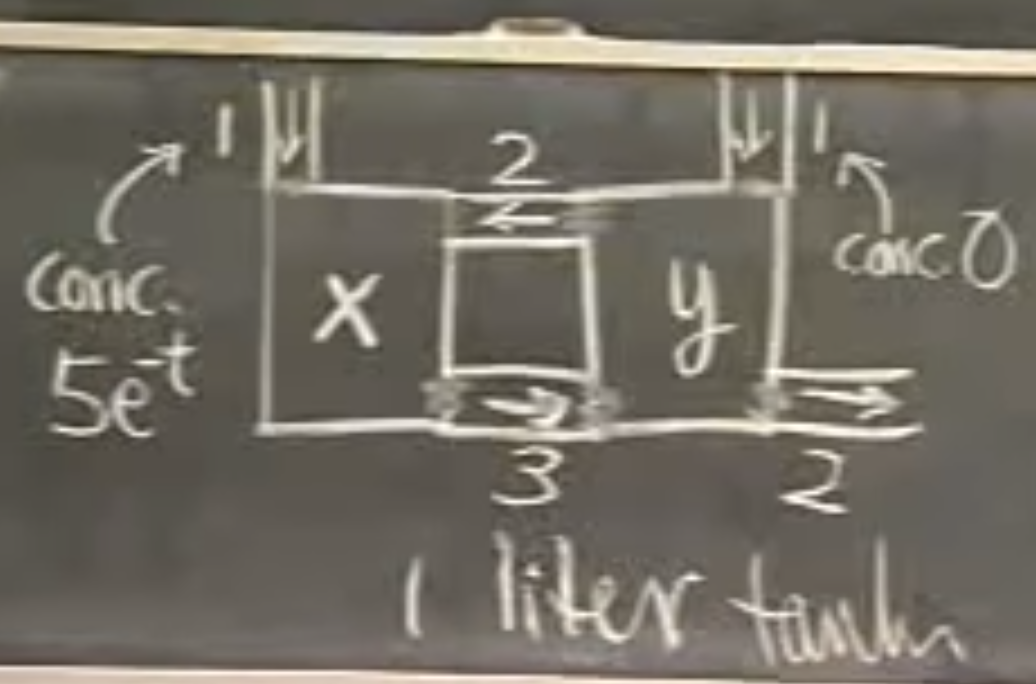 1 2 1
conc. 5e^-t
x y
conc. 0
3 2
1 liter tanks